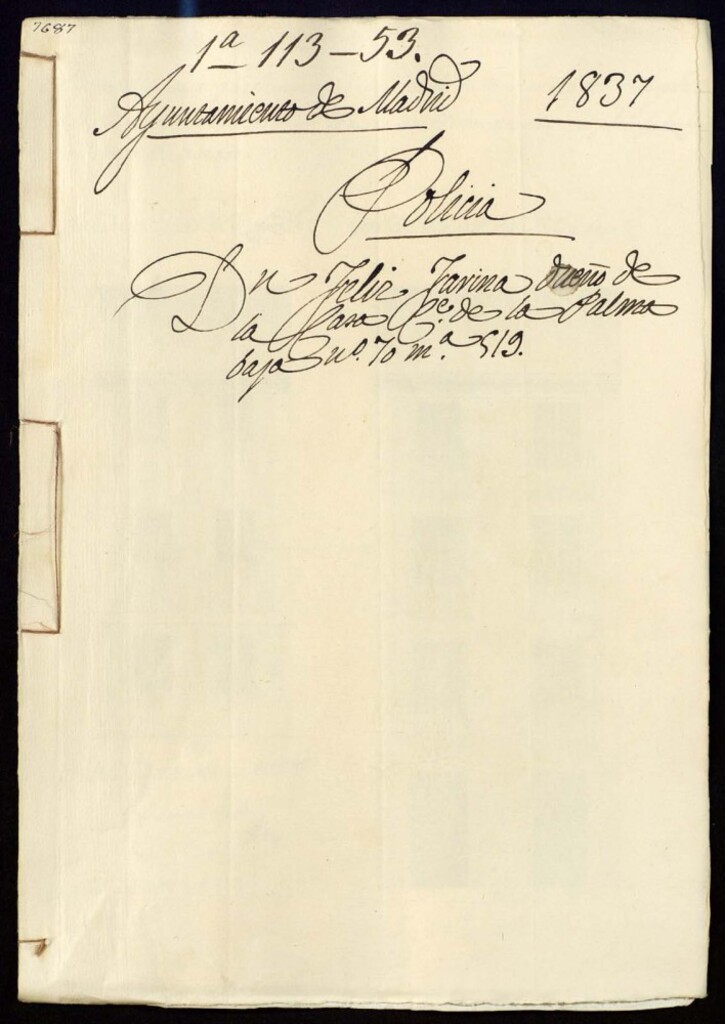 7687
1ª 113-53.
Ayuntamiento de Madrid 1837
Policia
Dn Feliz Farina dueño de
la Casa C.e de la Palma
baja nº. 70 m.ª 519.